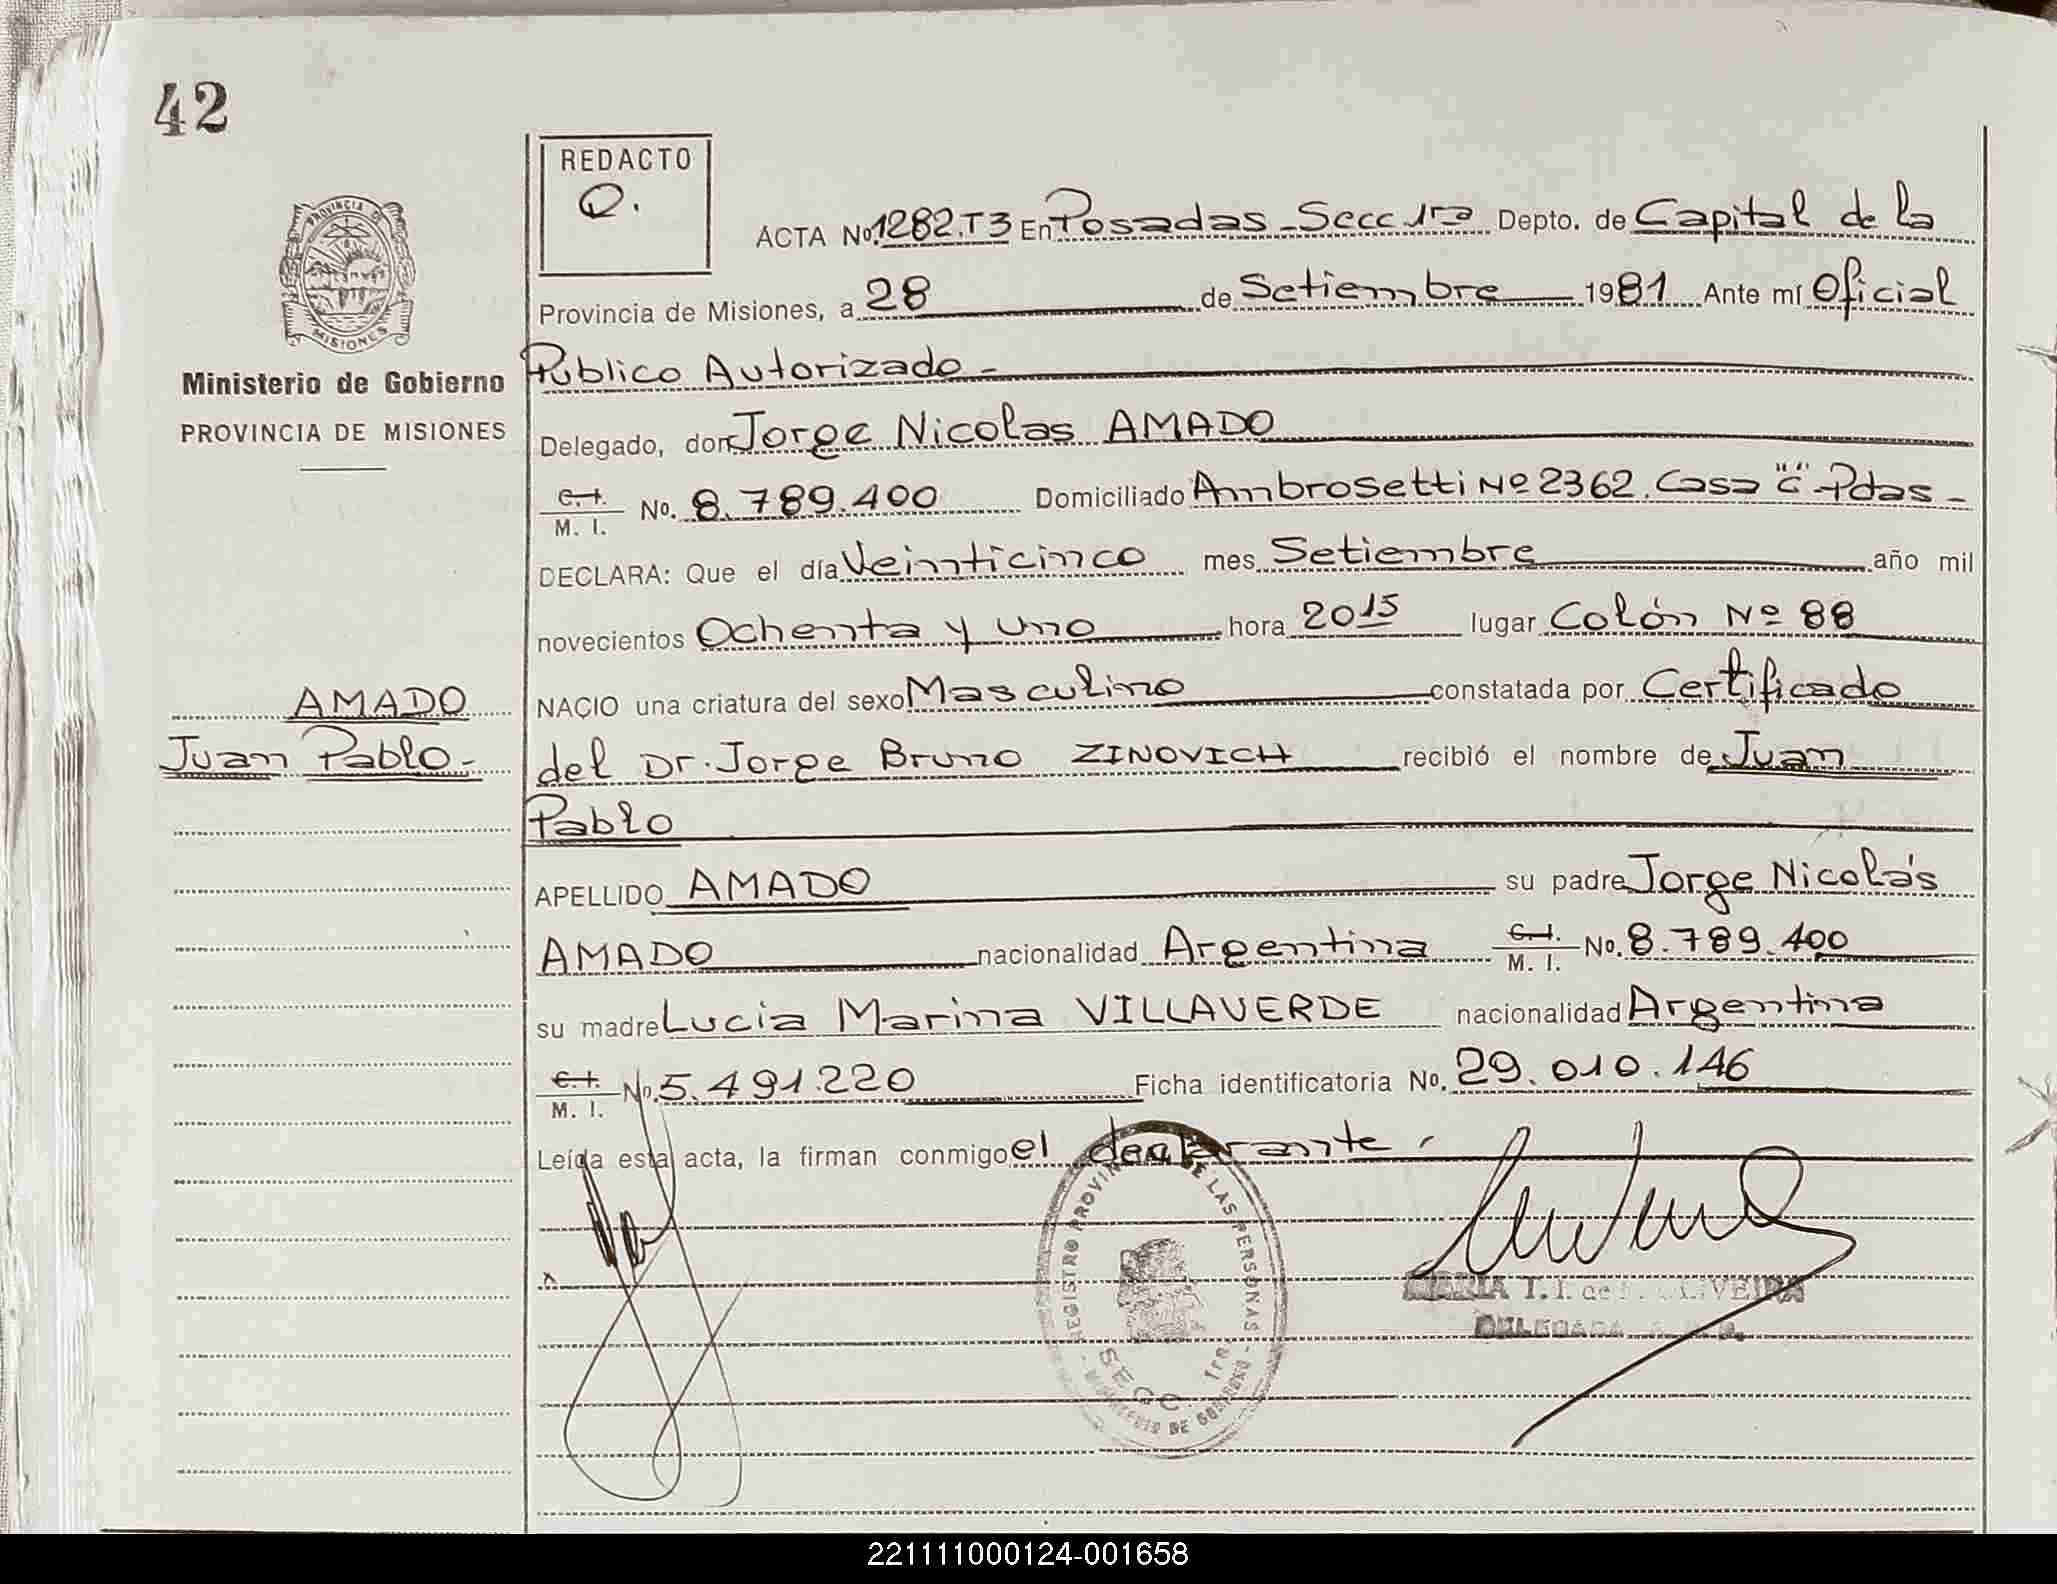 42
REDACTO
Q.
PROVINCIA DE
MISIONES
Ministerio de Gobierno
PROVINCIA DE MISIONES
ACTA No. 1282.T3 En Posadas - Secc 1ra Depto. de Capital de la
Provincia de Misiones, a 28 de Setiembre 1981 Ante mí Oficial
Público Autorizado -
Delegado, don Jorge Nicolas AMADO
C.I. M. I. No. 8.789.400 Domiciliado Ambrosetti Nº 2362. Casa "C" - Pdas -
DECLARA: Que el día Veinticinco mes Setiembre año mil
novecientos Ochenta y uno hora 2015 lugar Colón Nº 88
AMADO
Juan Pablo -
NACIO una criatura del sexo Masculino constatada por Certificado
del Dr. Jorge Bruno ZINOVICH recibió el nombre de Juan
Pablo
APELLIDO AMADO su padre Jorge Nicolás
AMADO nacionalidad Argentina C.I. M. I. No. 8.789.400
su madre Lucia Marina VILLAVERDE nacionalidad Argentina
C.I. M. I. No. 5.491.220 Ficha identificatoria No. 29.010.146
Leída esta acta, la firman conmigo el declarante.
REGISTRO PROVIN DE LAS PERSONAS
SECC. 1ra.
MINISTERIO DE GOBIERNO
MARIA T. I. de
DELEGADA
221111000124-001658